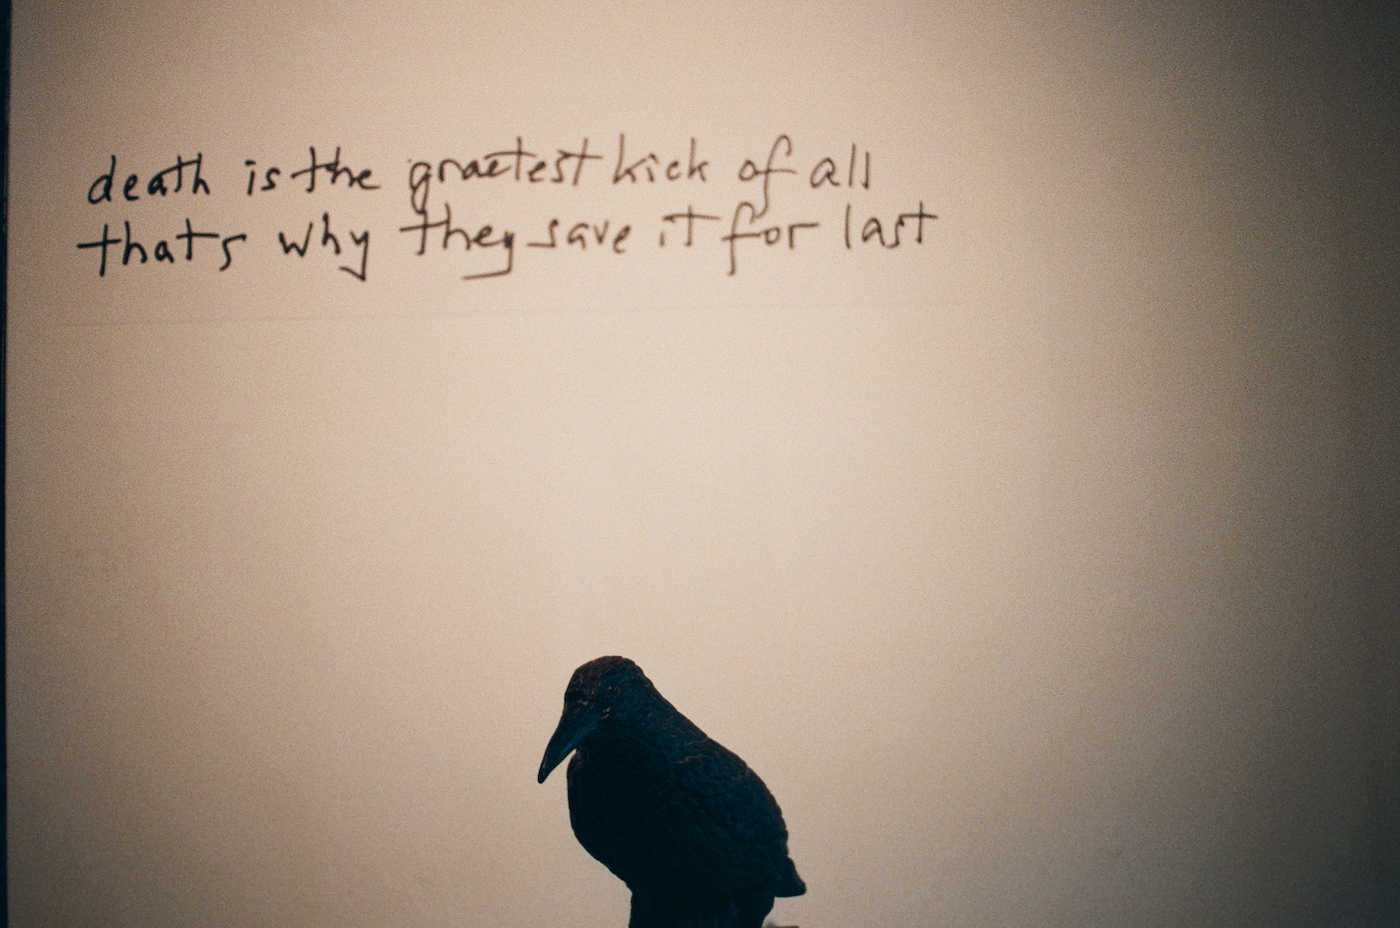 death is the graetest kick of all
that's why they save it for last